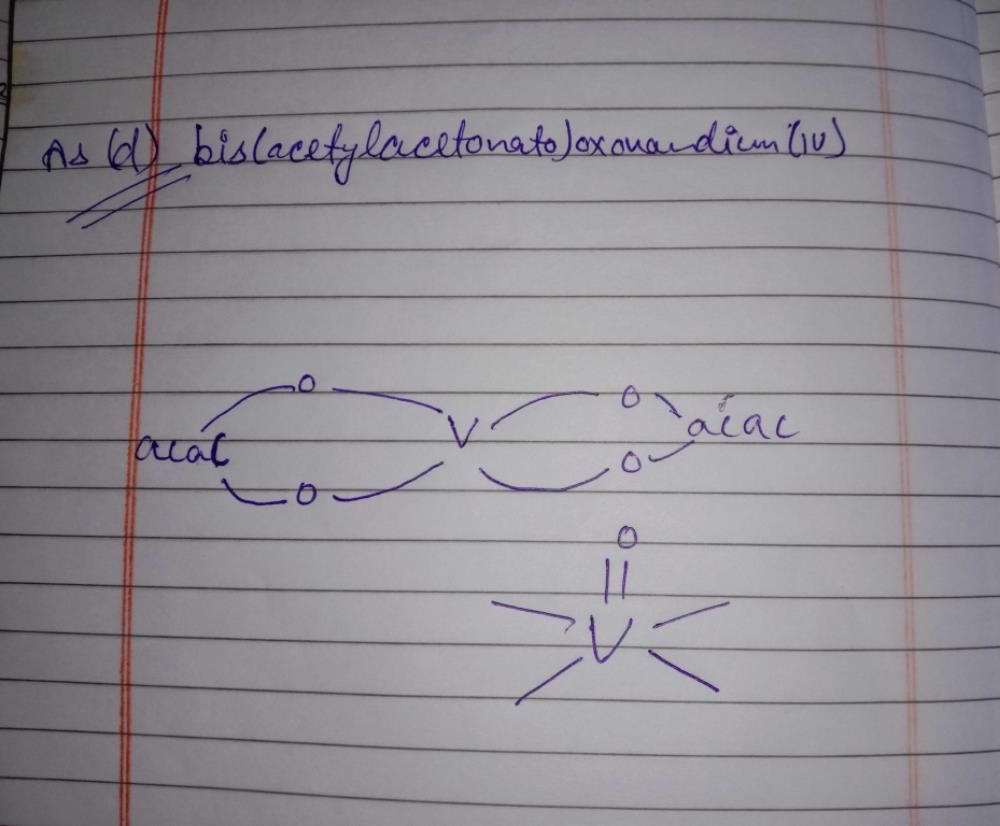 Ans (d) bis(acetylacetonato)oxovandium(IV)
O O
acac V acac
O O
O
V